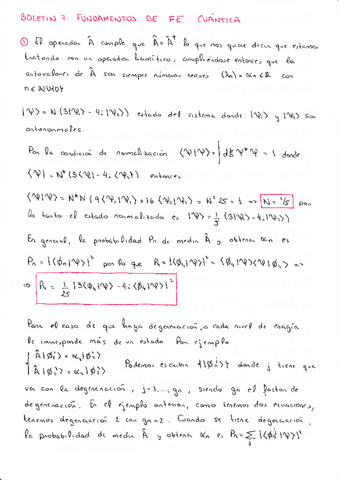 BOLETIN 7: FUNDAMENTOS DE FE CUÁNTICA
① El operador Â cumple que Â = Â† lo que nos quiere decir que estamos
tratando con un operador hermítico, cumpliéndose entonces que los
autovalores de Â son siempre números reales (λn) = αn ∈ ℝ con
n ∈ ℕ∪{0}
|Ψ⟩ = N (3|Ψ₁⟩ - 4i|Ψ₂⟩) estado del sistema donde |Ψ₁⟩ y |Ψ₂⟩ son
ortonormales.
Por la condición de normalización ⟨Ψ|Ψ⟩ = ∫dξ Ψ*Ψ = 1 donde
entonces
⟨Ψ|Ψ⟩ = N*N (9⟨Ψ₁|Ψ₁⟩ + 16⟨Ψ₂|Ψ₂⟩) = N² 25 = 1 => N = 1/5 por
lo tanto el estado normalizado es |Ψ⟩ = 1/5 (3|Ψ₁⟩ - 4i|Ψ₂⟩)
En general, la probabilidad Pn de medir Â y obtener αn es
Pn = |⟨ϕn|Ψ⟩|² por lo que Pn = |⟨ϕn|Ψ⟩|² = ⟨ϕn|Ψ⟩⟨Ψ|ϕn⟩ =>
=> Pn = 1/25 |3⟨ϕn|Ψ₁⟩ - 4i⟨ϕn|Ψ₂⟩|²
Para el caso de que haya degeneración, a cada nivel de energía
le corresponde más de un estado. Por ejemplo
Podemos escribir {|ϕnʲ⟩} donde j tiene que
ver con la degeneración, j = 1,..., gn, siendo gn el factor de
degeneración. En el ejemplo anterior, como tenemos dos ecuaciones,
tenemos degeneración 2 con gn = 2. Cuando se tiene degeneración,
la probabilidad de medir Â y obtener αn es Pn = Σj |⟨ϕnʲ|Ψ⟩|²